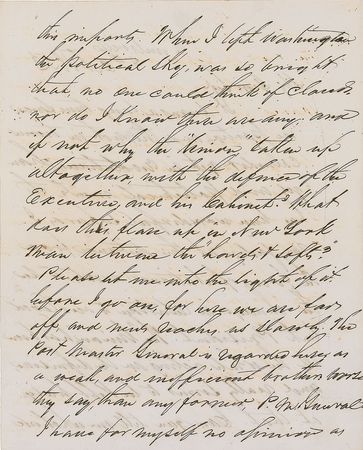 this imports. When I left Washington
the political sky, was so bright
that, no one could think of clouds
nor do I know there are any; and
if not, why the "Union" taken up
altogether, with the defence of the
Executive, and his Cabinet? What
does this flare up in New York
mean between the "hards & softs?"
Please let me into the light of it
before I go on, for here we are far
off, and news reaches us slowly. The
Post Master General is regarded here, as
a weak, and inefficient brother worse
they say, than any former, P. M. General
I have for myself no opinion as